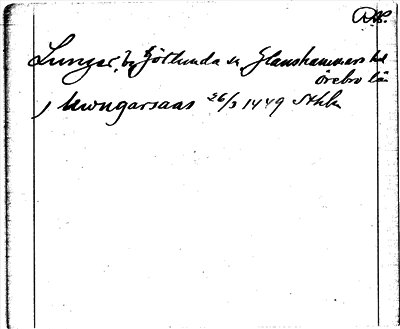 Lungar, by Götlunda sn Glanshammars hd
Örebro län
j lwngarsaas 26/3 1449 Sthlm